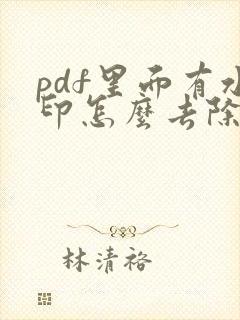 pdf里而有水
印怎麽去除
林清裕